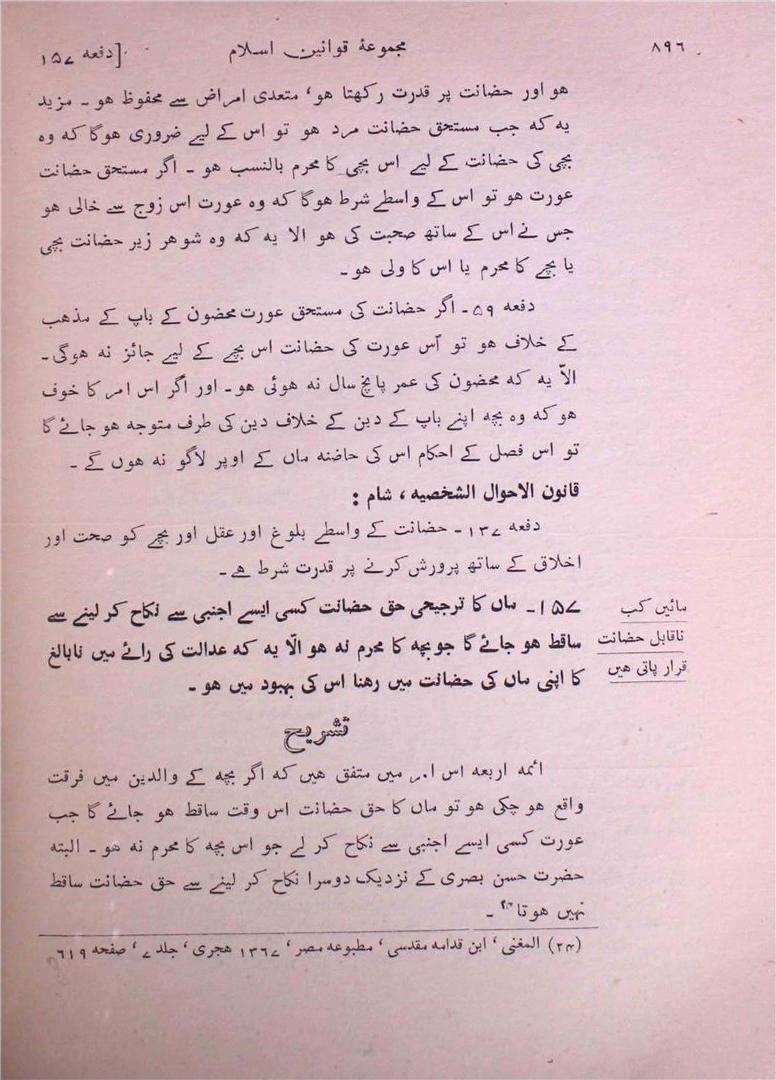 ٨٩٦ مجموعۂ قوانین اسلام [دفعہ ١٥٧
ھو اور حضانت پر قدرت رکھتا ھو، متعدی امراض سے محفوظ ھو ۔ مزید
یہ کہ جب مستحق حضانت مرد ھو تو اس کے لیے ضروری ھوگا کہ وہ
بچی کی حضانت کے لیے اس بچی کا محرم بالنسب ھو ۔ اگر مستحق حضانت
عورت ھو تو اس کے واسطے شرط ھوگا کہ وہ عورت اس زوج سے خالی ھو
جس نے اس کے ساتھ صحبت کی ھو الا یہ کہ وہ شوھر زیر حضانت بچی
یا بچے کا محرم یا اس کا ولی ھو ۔
دفعہ ٥٩ ۔ اگر حضانت کی مستحق عورت محضون کے باپ کے مذھب
کے خلاف ھو تو اُس عورت کی حضانت اس بچے کے لیے جائز نہ ھوگی ۔
الّا یہ کہ محضون کی عمر پانچ سال نہ ھوئی ھو ۔ اور اگر اس امر کا خوف
ھو کہ وہ بچہ اپنے باپ کے دین کے خلاف دین کی طرف متوجہ ھو جائے گا
تو اس فصل کے احکام اس کی حاضنہ ماں کے اوپر لاگو نہ ھوں گے ۔
قانون الاحوال الشخصیہ، شام :
دفعہ ١٣٧ ۔ حضانت کے واسطے بلوغ اور عقل اور بچے کو صحت اور
اخلاق کے ساتھ پرورش کرنے پر قدرت شرط ھے ۔
مائیں کب
ناقابل حضانت
قرار پاتی ھیں
١٥٧ ۔ ماں کا ترجیحی حق حضانت کسی ایسے اجنبی سے نکاح کر لینے سے
ساقط ھو جائے گا جو بچہ کا محرم نہ ھو الّا یہ کہ عدالت کی رائے میں نابالغ
کا اپنی ماں کی حضانت میں رھنا اس کی بہبود میں ھو ۔
تشریح
ائمہ اربعہ اس امر میں متفق ھیں کہ اگر بچہ کے والدین میں فرقت
واقع ھو چکی ھو تو ماں کا حق حضانت اس وقت ساقط ھو جائے گا جب
عورت کسی ایسے اجنبی سے نکاح کر لے جو اس بچہ کا محرم نہ ھو ۔ البتہ
حضرت حسن بصری کے نزدیک دوسرا نکاح کر لینے سے حق حضانت ساقط
نہیں ھوتا ۔
(٢٤) المغنی، ابن قدامہ مقدسی، مطبوعہ مصر، ١٣٦٧ ھجری، جلد ٧، صفحہ ٦١٩